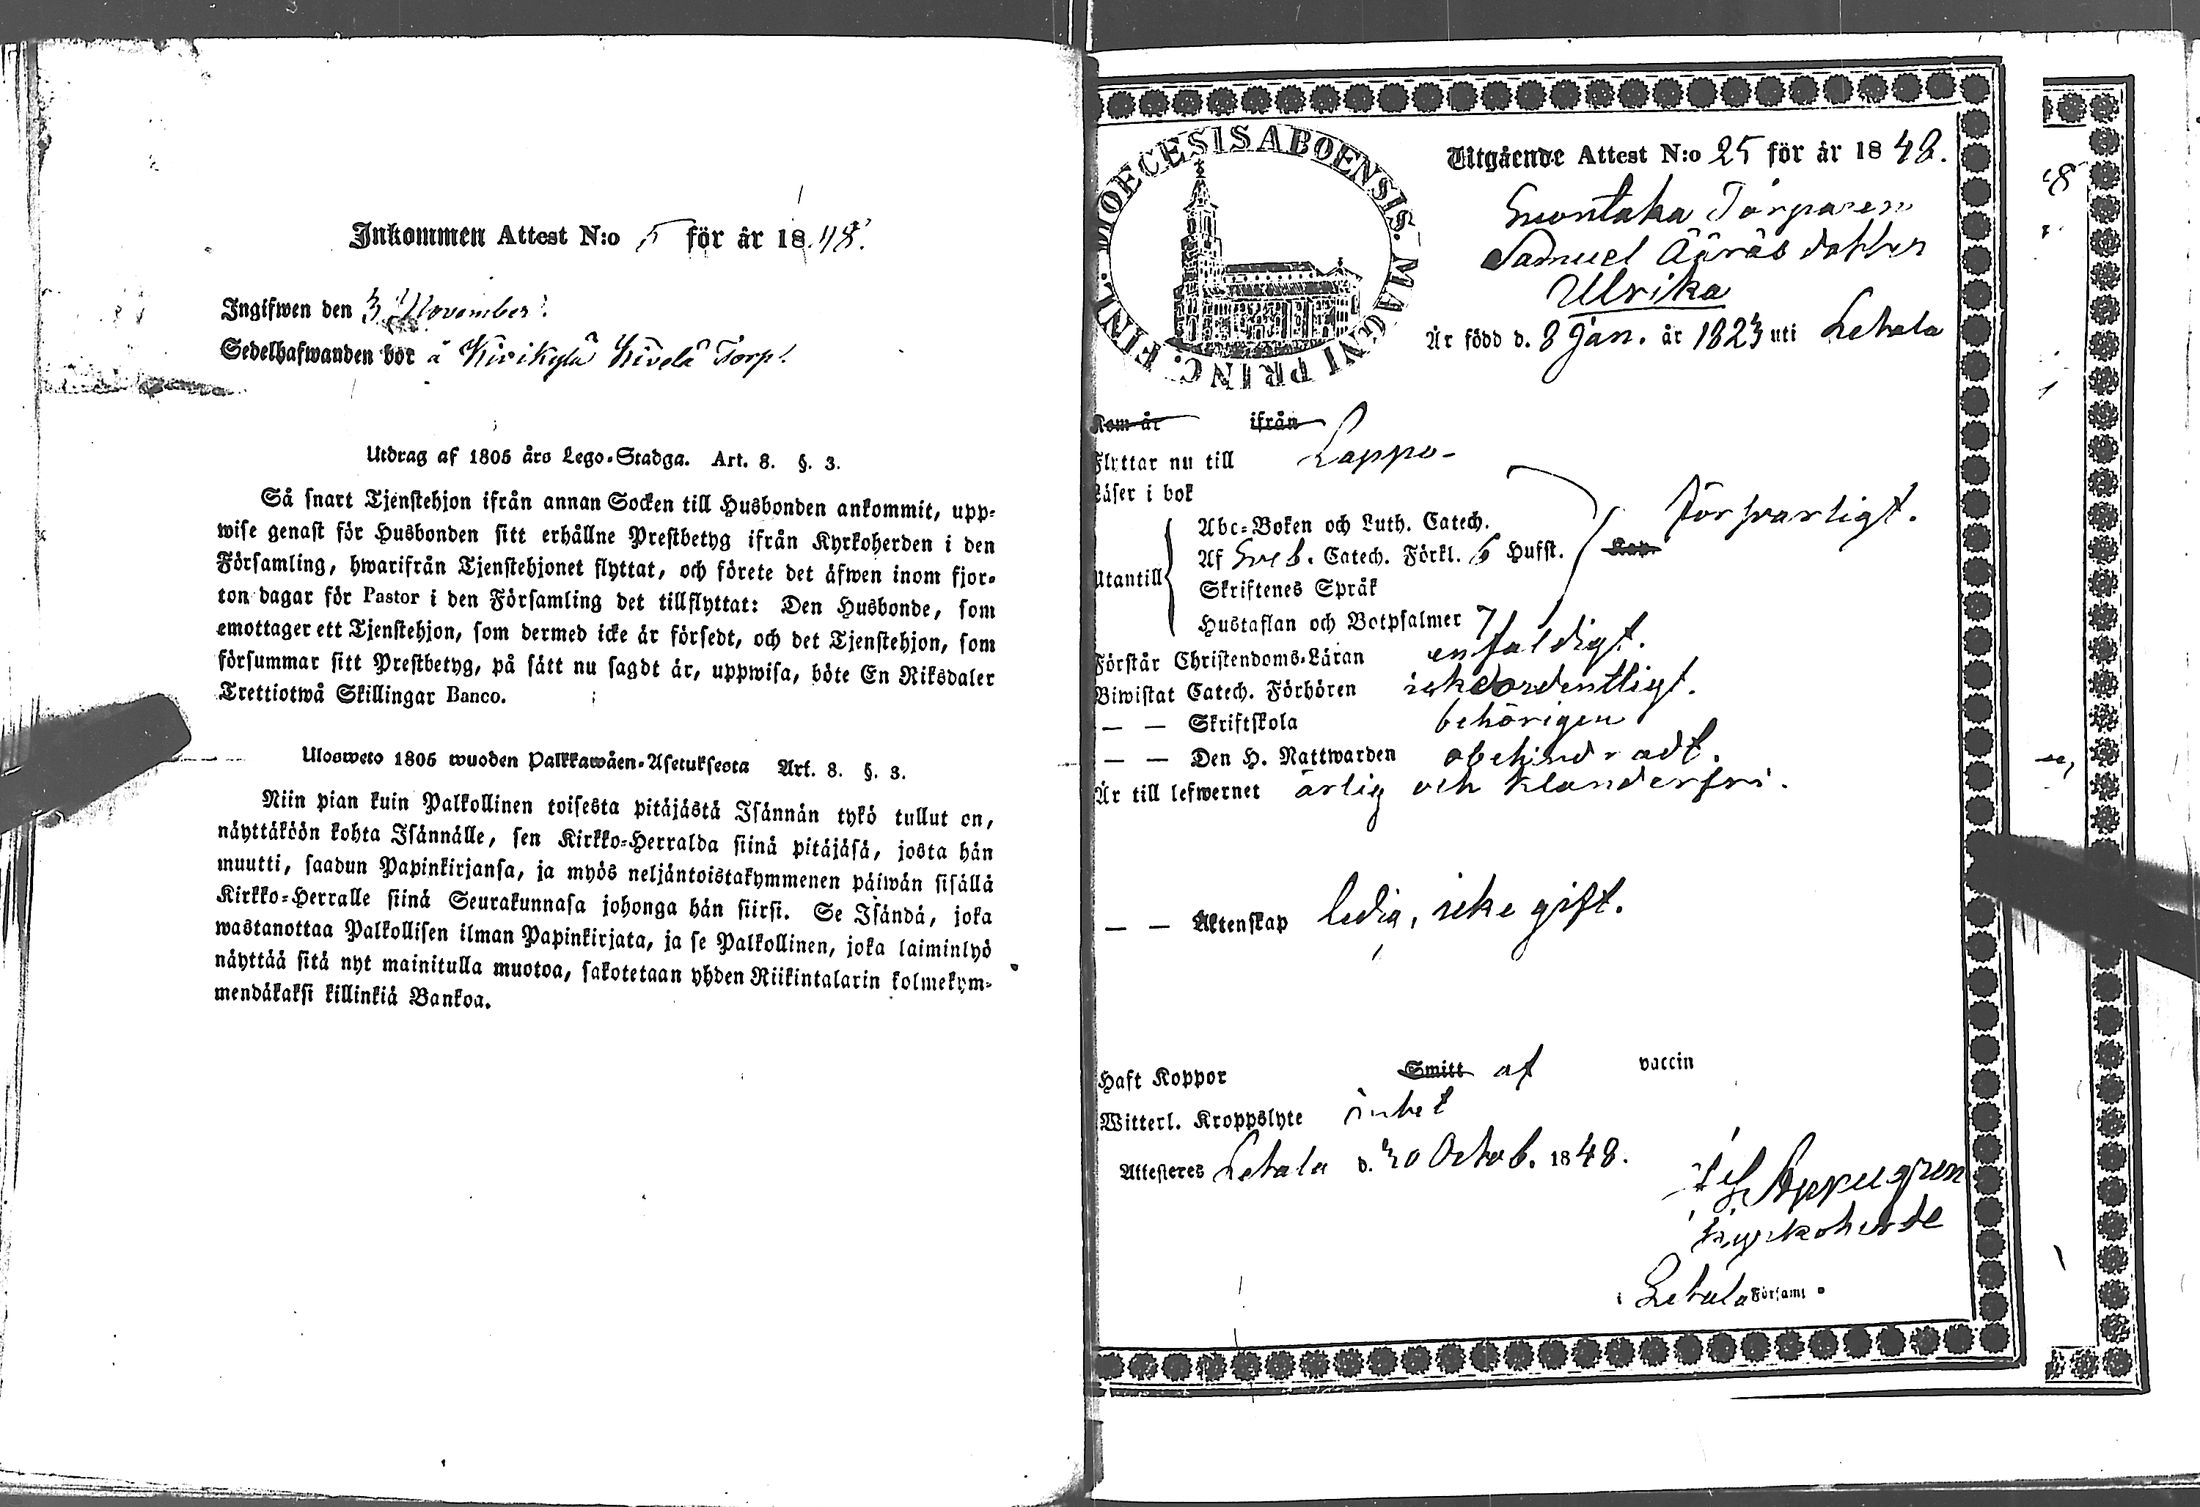 Inkommen Attest N:o 5 för år 1848.
Ingifwen den 3 November.
Sedelhafwanden bor å Kivikylä Kivelä Torp.
Utdrag af 1805 års Lego-Stadga. Art. 8. §. 3.
Så snart Tjenstehjon ifrån annan Socken till Husbonden ankommit, upp-
wise genast för Husbonden sitt erhållne Prestbetyg ifrån Kyrkoherden i den
Församling, hwarifrån Tjenstehjonet flyttat, och förete det äfwen inom fjor-
ton dagar för Pastor i den Församling det tillflyttat: Den Husbonde, som
emottager ett Tjenstehjon, som dermed icke är försedt, och det Tjenstehjon, som
försummar sitt Prestbetyg, på sätt nu sagdt är, uppwisa, böte En Riksdaler
Trettiotwå Skillingar Banco.
Ulosweto 1805 wuoden Palkkawäen-Asetuksesta Art. 8. §. 3.
Niin pian kuin Palkollinen toisesta pitäjästä Isännän tykö tullut on,
näyttäköön kohta Isännälle, sen Kirkko-Herralda siinä pitäjäsä, josta hän
muutti, saadun Papinkirjansa, ja myös neljäntoistakymmenen päiwän sisällä
Kirkko-Herralle siinä Seurakunnasa johonga hän siirsi. Se Isändä, joka
wastanottaa Palkollisen ilman Papinkirjata, ja se Palkollinen, joka laiminlyö
näyttää sitä nyt mainitulla muotoa, sakotetaan yhden Riikintalarin kolmekym-
mendäkaksi killinkiä Bankoa.
DIOECESIS ABOENSIS. MAGNI PRINC. FINL.
Utgående Attest N:o 25 för år 1848.
Suontaka Torparen
Samuel Ääräs dotter
Ulrika
Är född d. 8 Jan. år 1823 uti Letala
Kom år ifrån
Flyttar nu till Lappo
Läser i bok
Abc-Boken och Luth. Catech.
Af Sveb. Catech. Förkl. 5 Hufst. försvarligt.
Utantill
Skriftenes Språk
Hustaflan och Botpsalmer 7
Förstår Christendoms-Läran enfaldigt.
Biwistat Catech. Förhören icke ordentligt.
— — Skriftskola behörigen
— — Den H. Nattwarden obehindradt.
Är till lefwernet ärlig och klanderfri.
— — Äktenskap ledig, icke gift.
Haft Koppor Smitt af vaccin
Witterl. Kroppslyte intet
Attesteres Letala d. 30 Octob. 1848.
Appelgren
Kyrkoherde
i Letala Församl